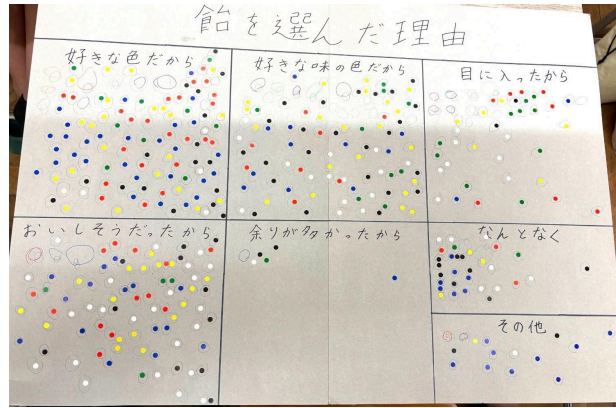 飴を選んだ理由
好きな色だから
好きな味の色だから
目に入ったから
おいしそうだったから
余りが多かったから
なんとなく
その他